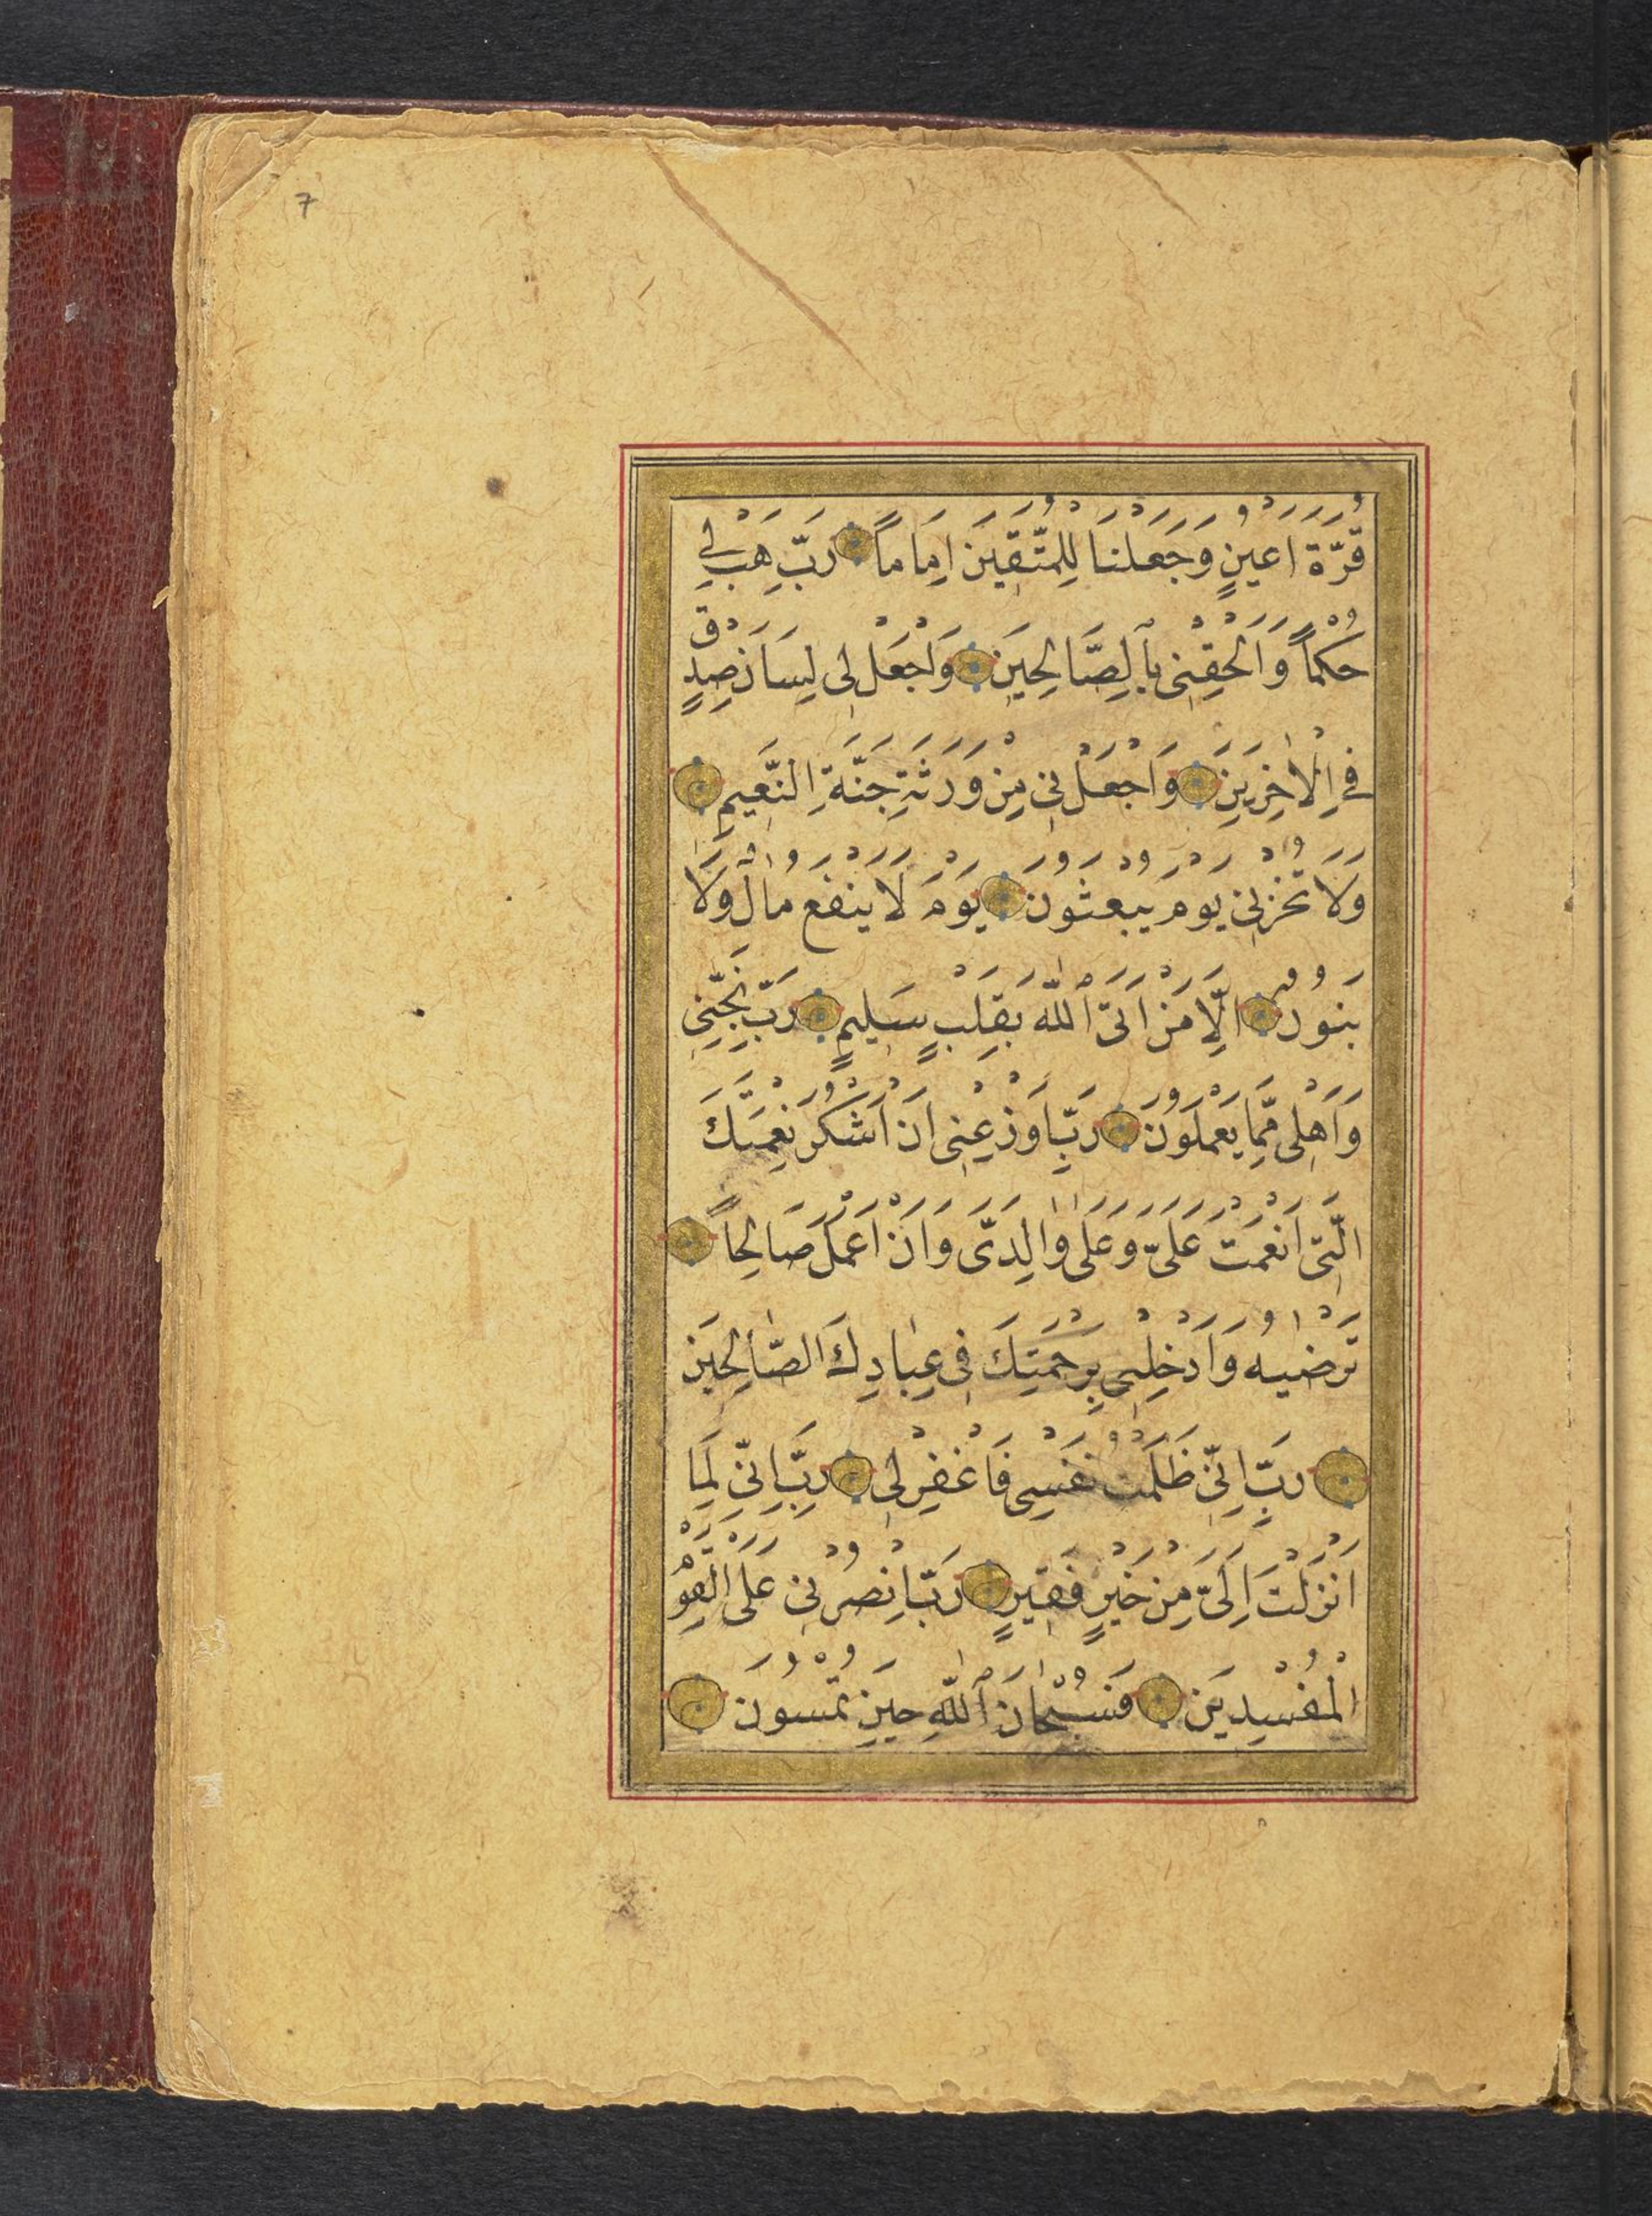 7
قُرَّةَ اَعْيُنٍ وَجَعَلْنَا لِلْمُتَّقِينَ اِمَاماً رَبِّ هَبْ لِي
حُكْماً وَاَلْحِقْنِي بِالصَّالِحِينَ وَاجْعَلْ لِي لِسَانَ صِدْقٍ
فِي الْاٰخِرِينَ وَاجْعَلْنِي مِنْ وَرَثَةِ جَنَّةِ النَّعِيمِ
وَلَا تُخْزِنِي يَوْمَ يُبْعَثُونَ يَوْمَ لَا يَنْفَعُ مَالٌ وَلَا
بَنُونَ اِلَّا مَنْ اَتَى اللّٰهَ بِقَلْبٍ سَلِيمٍ رَبِّ نَجِّنِي
وَاَهْلِي مِمَّا يَعْمَلُونَ رَبِّ اَوْزِعْنِي اَنْ اَشْكُرَ نِعْمَتَكَ
الَّتِي اَنْعَمْتَ عَلَيَّ وَعَلٰى وَالِدَيَّ وَاَنْ اَعْمَلَ صَالِحاً
تَرْضٰيهُ وَاَدْخِلْنِي بِرَحْمَتِكَ فِي عِبَادِكَ الصَّالِحِينَ
رَبِّ اِنِّي ظَلَمْتُ نَفْسِي فَاغْفِرْ لِي رَبِّ اِنِّي لِمَا
اَنْزَلْتَ اِلَيَّ مِنْ خَيْرٍ فَقِيرٍ رَبِّ انْصُرْنِي عَلَى الْقَوْمِ
الْمُفْسِدِينَ فَسُبْحَانَ اللّٰهِ حِينَ تُمْسُونَ